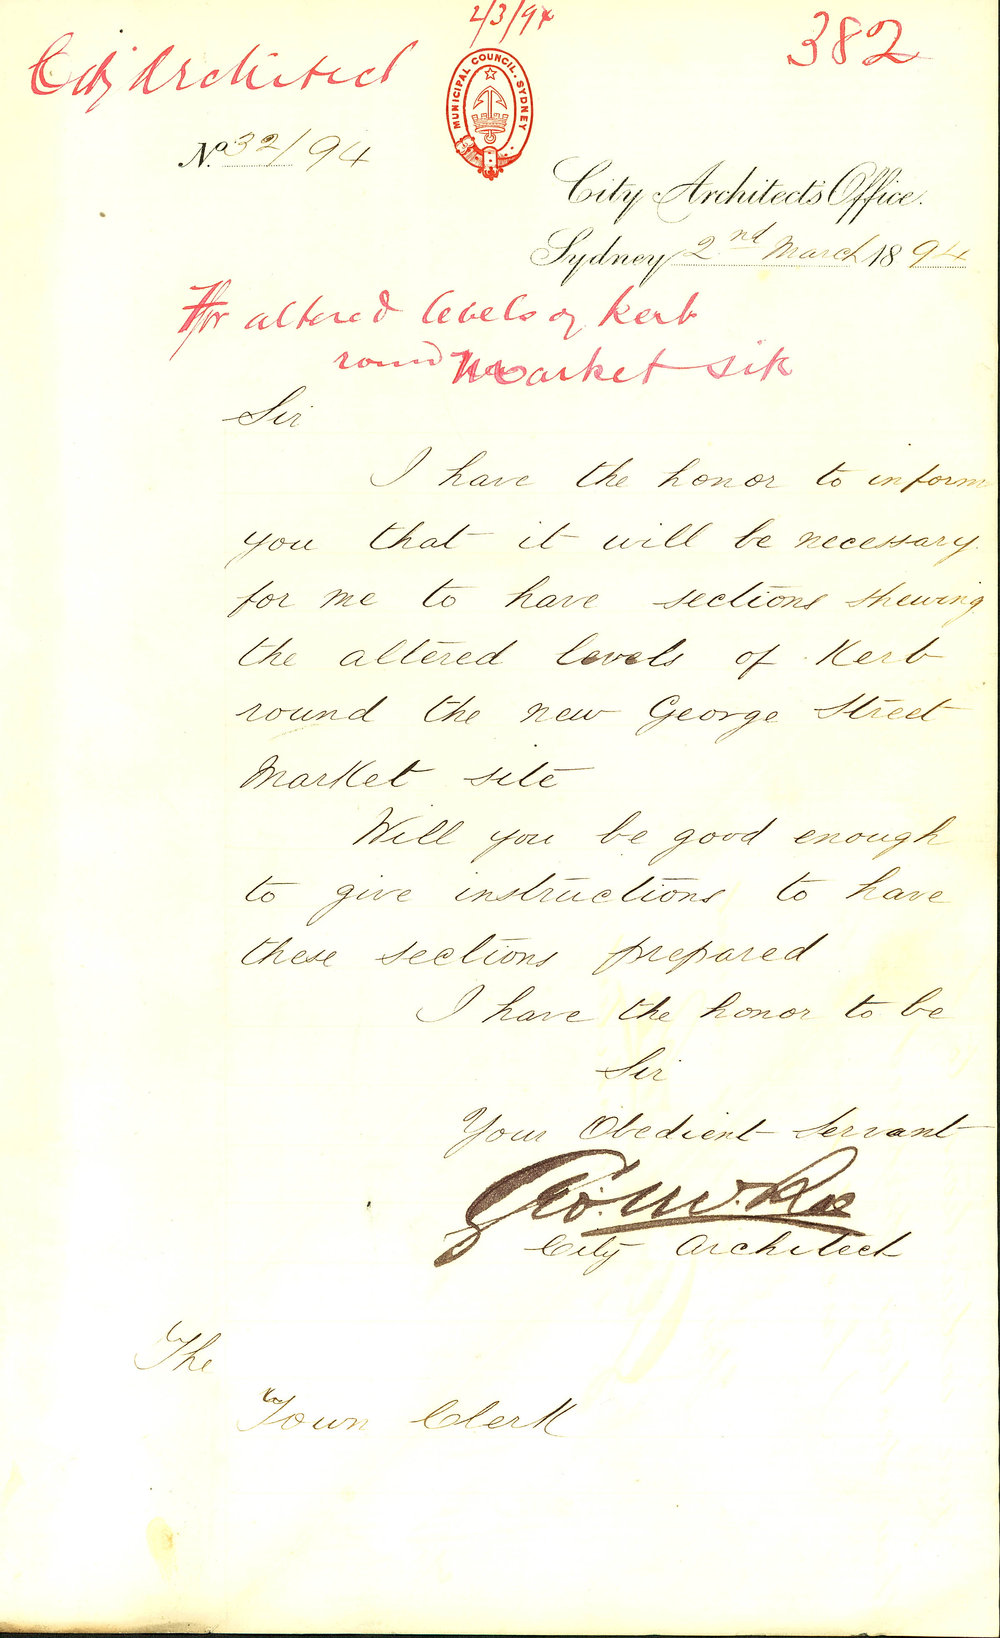 2/3/94
382
City Architect
MUNICIPAL COUNCIL. SYDNEY
No. 32/94
City Architect's Office.
Sydney 2nd March 1894
For altered levels of Kerb
round Market site
Sir
I have the honor to inform
you that it will be necessary
for me to have sections shewing
the altered levels of Kerb
round the new George Street
Market site
Will you be good enough
to give instructions to have
these sections prepared
I have the honor to be
Sir
Your Obedient Servant
Geo. McRae
City Architect
The
Town Clerk